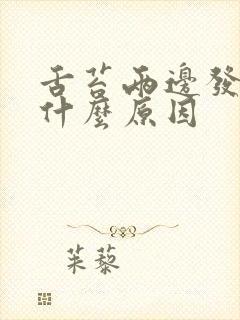 舌苔兩邊發
什麼原因
茱藜